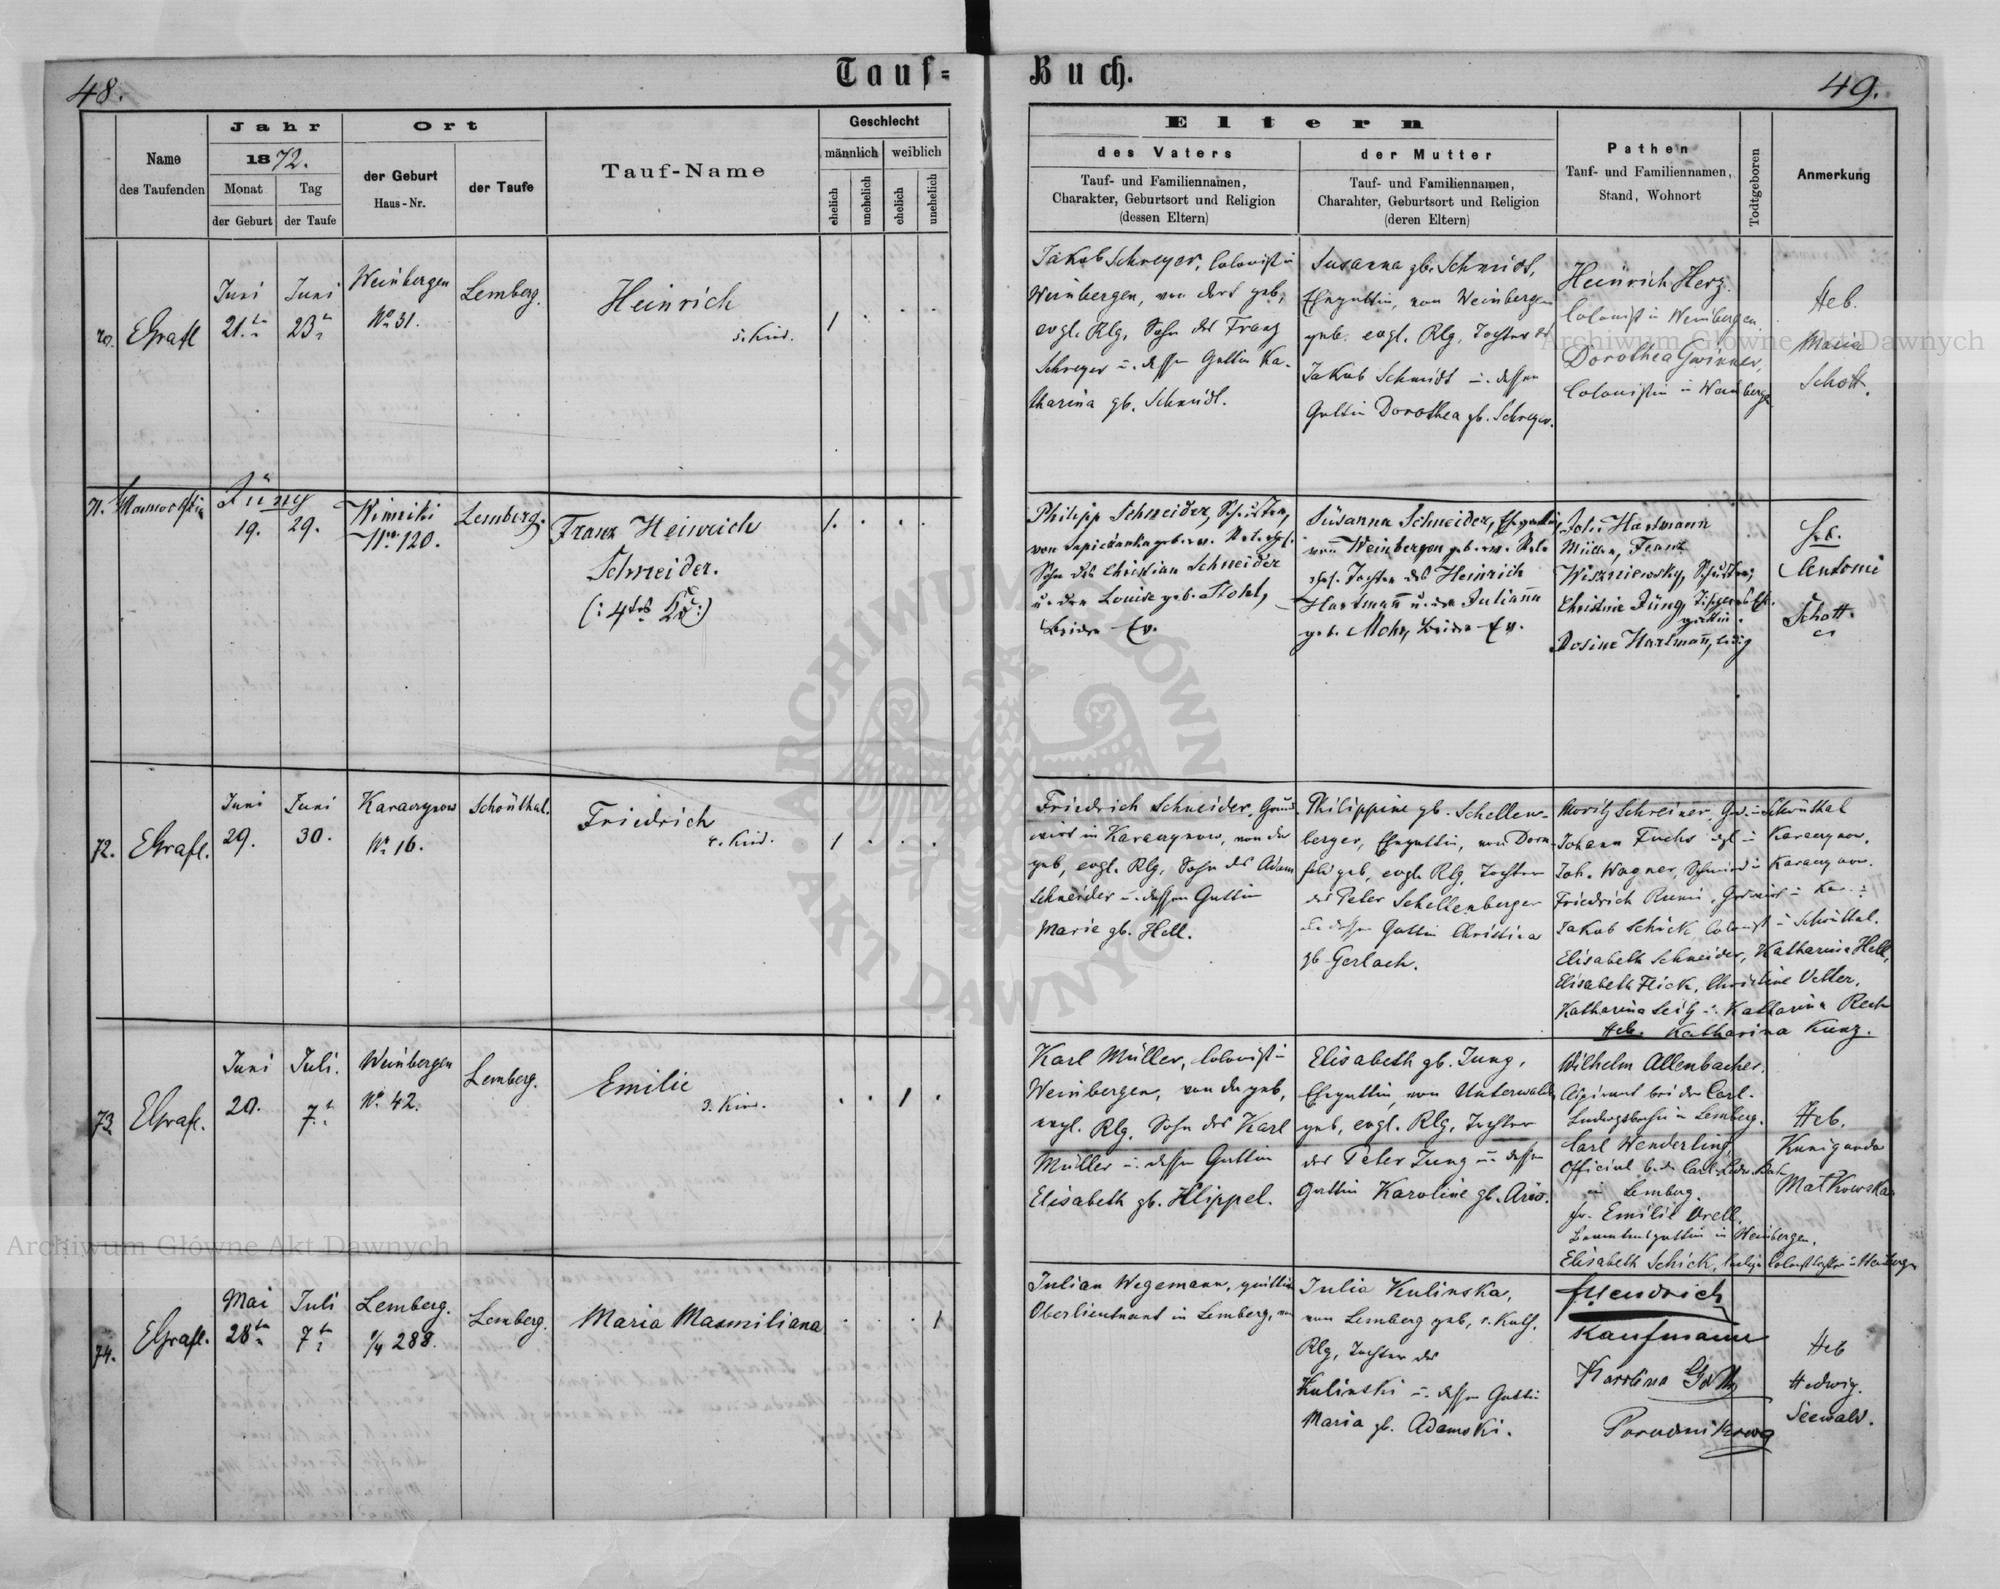 48.
Tauf-
Buch.
49.
Name
des Taufenden
Jahr
1872.
Monat
Tag
der Geburt
der Taufe
Ort
der Geburt
Haus-Nr.
der Taufe
Tauf-Name
Geschlecht
männlich
weiblich
ehelich
unehelich
ehelich
unehelich
Eltern
des Vaters
Tauf- und Familiennamen,
Charakter, Geburtsort und Religion
(dessen Eltern)
der Mutter
Tauf- und Familiennamen,
Charakter, Geburtsort und Religion
(deren Eltern)
Pathen
Tauf- und Familiennamen,
Stand, Wohnort
Todtgeboren
Anmerkung
70.
EGrafl
Juni
21.
Juni
23
Weinbergen
No 31.
Lemberg.
Heinrich
5. Kind.
1
Jakob Schreyer, Colonist in
Weinbergen, von dort geb,
evgl. Rlg, Sohn des Franz
Schreyer u. dessen Gattin Ka-
tharina gb. Schmidt.
Susanna gb. Schmidt,
Ehegattin, von Weinbergen
geb. evgl. Rlg, Tochter des
Jakob Schmidt u. dessen
Gattin Dorothea gb. Schreyer.
Heinrich Herz.
Colonist in Weinbergen.
Dorothea Gwinner,
Colonistin in Weinbergen
Heb.
Maria
Schott.
71.
Juny
19.
29.
Winniki
Nro 120.
Lemberg.
Franz Heinrich
Schneider.
(: 4tes Kd :)
1.
Philipp Schneider, Schuster,
von Sapiezanka geb.
Sohn des Christian Schneider
u. der Louise geb. Stohl,
beide Ev.
Susanna Schneider, Ehegattin
von Weinbergen geb.
Tochter des Heinrich
Hartmann u. der Juliana
geb. Mohr, beide Ev.
Joh. Hartmann
Müller, Franz
Wiszniewsky, Schuster,
Christine Jung,
gattin.
Rosine Hartmann, ledig
Heb.
Antonie
Schott.
72.
EGrafl.
Juni
29.
Juni
30.
Karaczynow
No 16.
Schönthal.
Friedrich
4. Kind.
1
Friedrich Schneider, Grund-
wirt in Karaczynow, von da
geb, evgl. Rlg, Sohn des Adam
Schneider u. dessen Gattin
Marie gb. Hell.
Philippine gb. Schellen-
berger, Ehegattin, von Dorn-
feld geb, evgl. Rlg, Tochter
des Peter Schellenberger
u. dessen Gattin Christina
gb Gerlach.
Moritz Schreiner, in Schönthal
Johann Fuchs in Karaczynow,
Joh. Wagner, Schmied in Karaczynow.
Friedrich
Jakob Schick Colonist in Schönthal.
Elisabeth Schneider, Katharina Hell,
Elisabeth Flick, Christine Vetter,
Katharina Seiz u. Katharina Rech
Heb. Katharina Kunz.
73.
EGrafl.
Juni
20.
Juli.
7
Weinbergen
No 42.
Lemberg.
Emilie
3. Kind.
1
Karl Müller, Colonist in
Weinbergen, von da geb,
evgl. Rlg, Sohn des Karl
Müller u. dessen Gattin
Elisabeth gb. Hlippel.
Elisabeth gb. Jung,
Ehegattin, von Unterwalden
geb, evgl. Rlg, Tochter
des Peter Jung u. dessen
Gattin Karoline gb.
Wilhelm Allenbacher,
bei der Carl-
Ludwigsbahn in Lemberg.
Carl Wenderling,
Official b. d. Carl-Ludw. Bah
in Lemberg.
Emilie Orell,
Beamtensgattin in Weinbergen.
Elisabeth Schick,
Heb.
Kunigunda
Matkowska
74.
EGrafl.
Mai
28
Juli
7
Lemberg.
288.
Lemberg.
Maria Maxmiliana
1
Julian Wegemann,
Oberlieutenant in Lemberg,
Julia Kulinska,
von Lemberg geb, r. Kath.
Rlg, Tochter des
Kulinski u. dessen Gattin
Maria gb. Adamski.
Hendrich
Kaufmann
Karolina
Heb
Hedwig.
Seewald.
Archiwum Główne Akt Dawnych
Archiwum Główne Akt Dawnych
ARCHIWUM GŁÓWNE AKT DAWNYCH